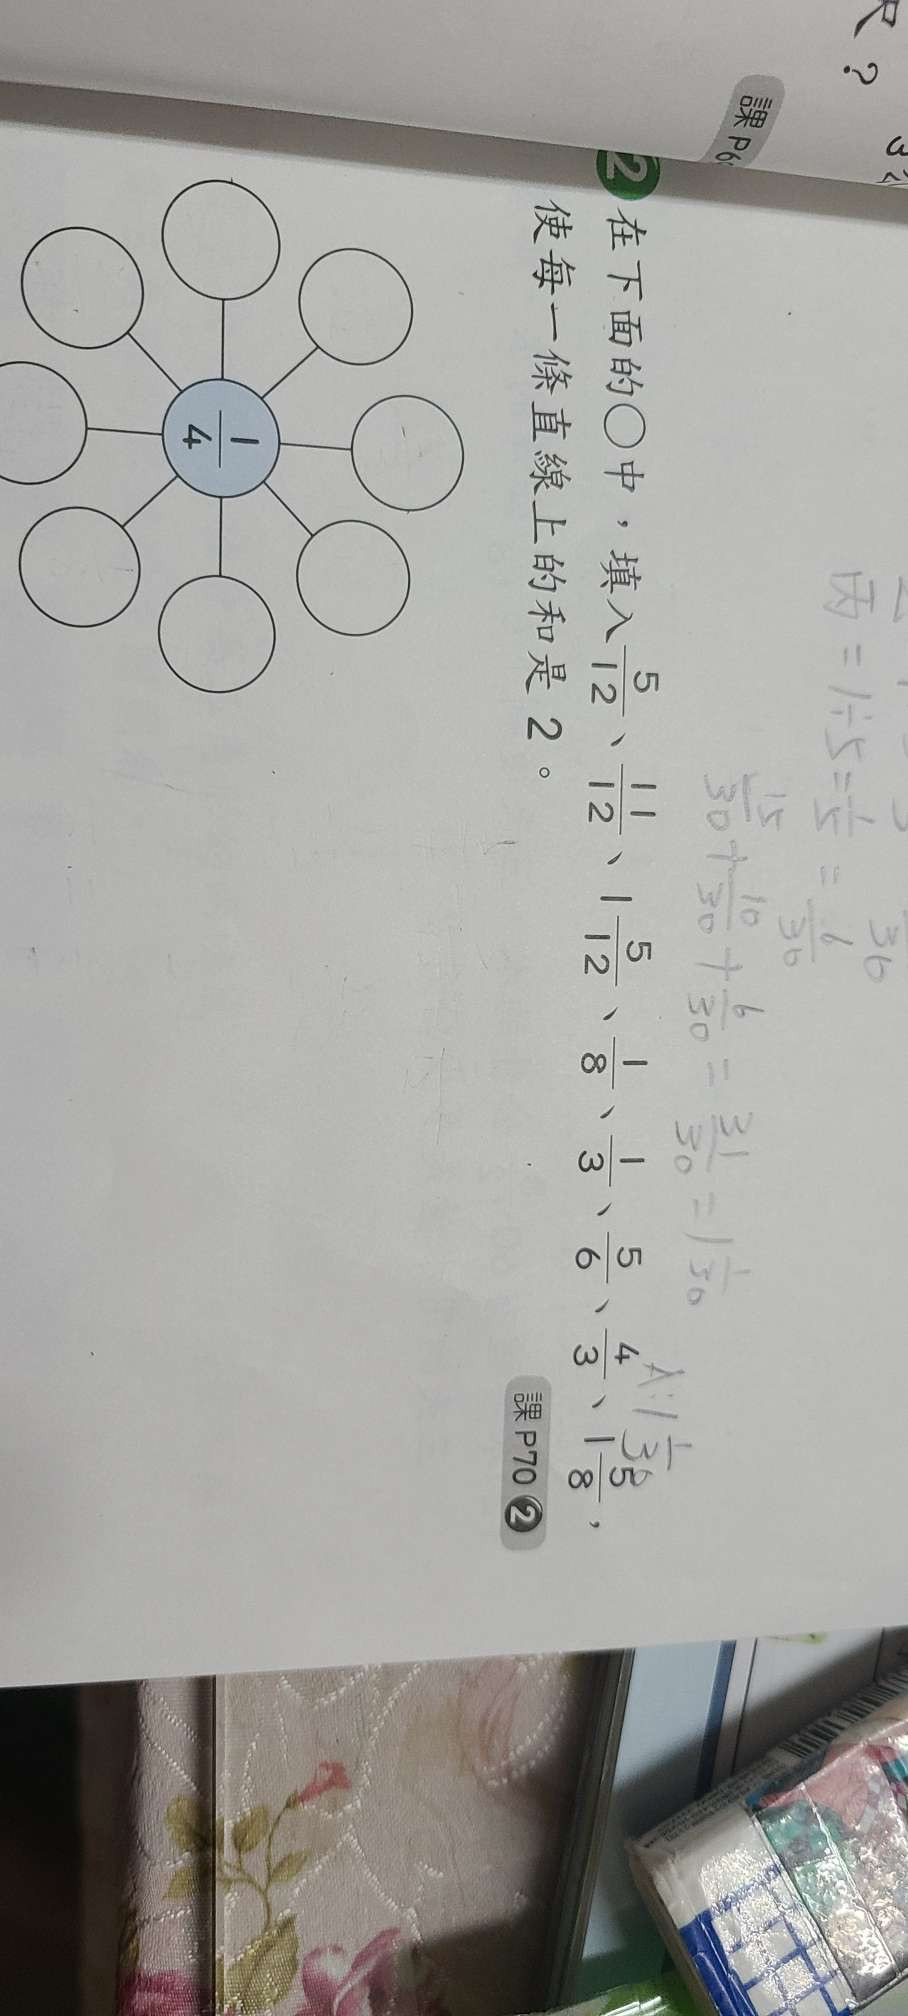 尺？
課P6
丙=1÷5=1/5=6/30
15/30+10/30+6/30=31/30=1 1/30
A:1 1/30
2 在下面的○中，填入5/12、11/12、1 5/12、1/8、1/3、5/6、4/3、1 5/8，
使每一條直線上的和是2。
課P70 2
1/4